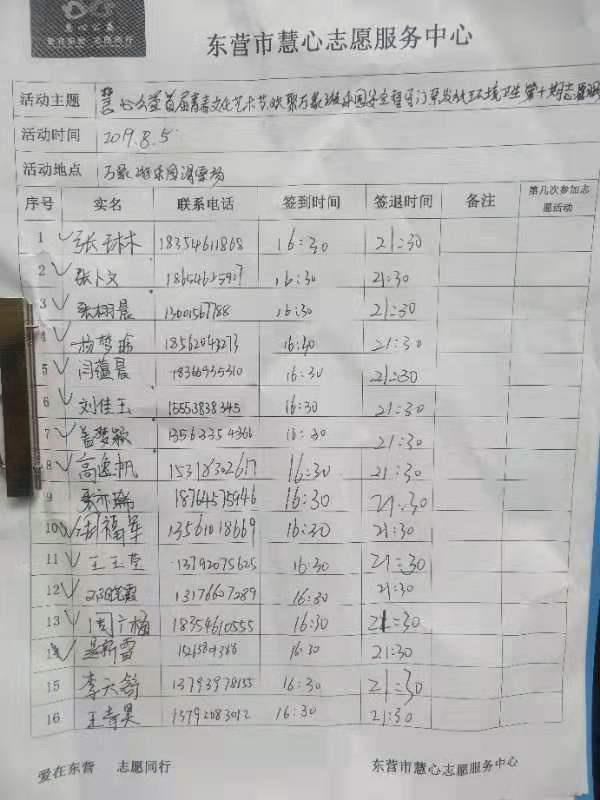 爱在东营 志愿同行
东营市慧心志愿服务中心
活动主题 慧心公益首届青春文化艺术节欢聚万象游乐园 环境卫生第十期志愿
活动时间 2019.8.5
活动地点 万象游乐园
序号 实名 联系电话 签到时间 签退时间 备注 第几次参加志愿活动
1 张琳 18354611868 16:30 21:30
2 张卜文 16:30 21:30
3 张栩晨 13001567788 16:30 21:30
4 杨梦瑜 18562043273 16:30 21:30
5 闫蕴晨 18366935310 16:30 21:30
6 刘佳玉 15553838345 16:30 21:30
7 盖梦颖 13563354366 16:30 21:30
8 高逸帆 15318302617 16:30 21:30
9 18764575946 16:30 21:30
10 福军 13561018669 16:30 21:30
11 王玉莹 13792075625 16:30 21:30
12 邓晓霞 13176607289 16:30 21:30
13 周广梅 18354610555 16:30 21:30
14 新雪 16:30 21:30
15 李云鹤 13793978155 16:30 21:30
16 王奇昊 13792083012 16:30 21:30
爱在东营 志愿同行 东营市慧心志愿服务中心